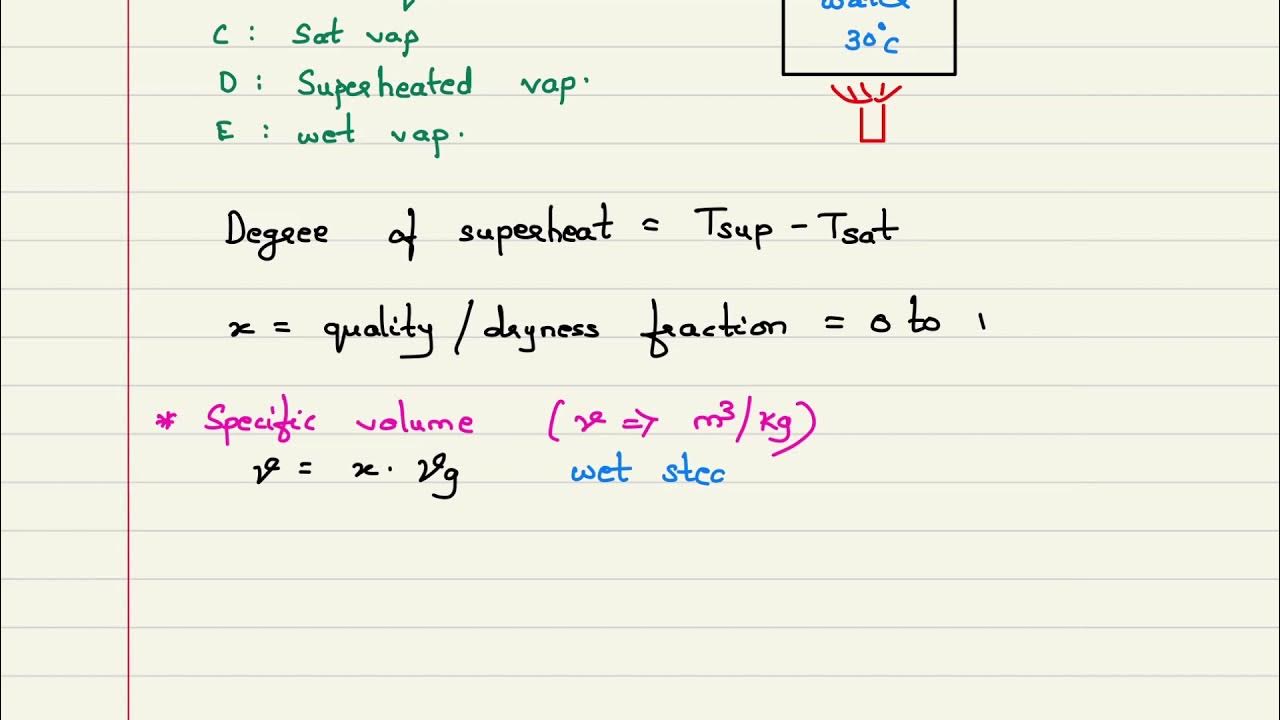 C : Sat vap
30°C
D : Superheated vap.
E : wet vap.
Degree of superheat = Tsup - Tsat
x = quality / dryness fraction = 0 to 1
* Specific volume (v => m³/kg)
v = x. vg wet stec